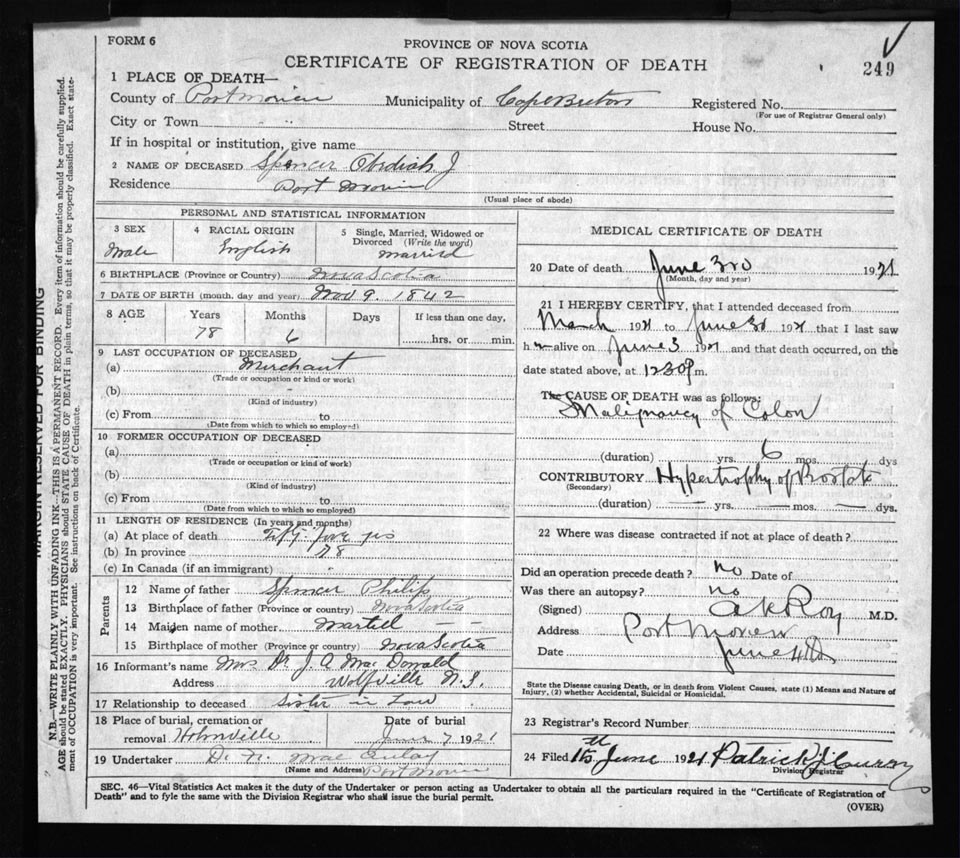 FORM 6
PROVINCE OF NOVA SCOTIA
CERTIFICATE OF REGISTRATION OF DEATH
249
1 PLACE OF DEATH—
County of Port Morien Municipality of Cape Breton Registered No.
(For use of Registrar General only)
City or Town Street House No.
If in hospital or institution, give name
2 NAME OF DECEASED Spencer Obediah J
Residence Port Morien
(Usual place of abode)
PERSONAL AND STATISTICAL INFORMATION
3 SEX 4 RACIAL ORIGIN 5 Single, Married, Widowed or
Divorced (Write the word)
Male English married
6 BIRTHPLACE (Province or Country) Nova Scotia
7 DATE OF BIRTH (month, day and year) Nov 9. 1842
8 AGE Years Months Days If less than one day,
78 6 hrs. or min.
9 LAST OCCUPATION OF DECEASED
(a) Merchant
(Trade or occupation or kind or work)
(b)
(Kind of industry)
(c) From to
(Date from which to which so employed)
10 FORMER OCCUPATION OF DECEASED
(a)
(Trade or occupation or kind of work)
(b)
(Kind of industry)
(c) From to
(Date from which to which so employed)
11 LENGTH OF RESIDENCE (In years and months)
(a) At place of death Fifty yrs
(b) In province 78
(c) In Canada (if an immigrant)
Parents
12 Name of father Spencer Philip
13 Birthplace of father (Province or country) Nova Scotia
14 Maiden name of mother Martell
15 Birthplace of mother (Province or country) Nova Scotia
16 Informant's name Mrs Dr. J. A. MacDonald
Address Wolfville N.S.
17 Relationship to deceased Sister in Law
18 Place of burial, cremation or Date of burial
removal June 7 1921
19 Undertaker D. N. MacAulay
(Name and Address) Port Morien
MEDICAL CERTIFICATE OF DEATH
20 Date of death June 3rd 1921
(Month, day and year)
21 I HEREBY CERTIFY, that I attended deceased from
March 1921 to June 3d 1921 that I last saw
h alive on June 3 1921 and that death occurred, on the
date stated above, at 12.30 P m.
The CAUSE OF DEATH was as follows:
Malignancy of Colon
(duration) yrs. 6 mos. dys
CONTRIBUTORY Hypertrophy of Prostate
(Secondary)
(duration) — yrs. — mos. — dys.
22 Where was disease contracted if not at place of death?
Did an operation precede death? no Date of
Was there an autopsy? no
(Signed) A K Roy M.D.
Address Port Morien
Date June 4th
State the Disease causing Death, or in death from Violent Causes, state (1) Means and Nature of
Injury, (2) whether Accidental, Suicidal or Homicidal.
23 Registrar's Record Number
24 Filed 15th June 1921 Patrick J Curry
Division Registrar
SEC. 46—Vital Statistics Act makes it the duty of the Undertaker or person acting as Undertaker to obtain all the particulars required in the "Certificate of Registration of
Death" and to fyle the same with the Division Registrar who shall issue the burial permit.
(OVER)
MARGIN RESERVED FOR BINDING
N.B.—WRITE PLAINLY WITH UNFADING INK—THIS IS A PERMANENT RECORD. Every item of information should be carefully supplied.
AGE should be stated EXACTLY. PHYSICIANS should STATE CAUSE OF DEATH in plain terms, so that it may be properly classified. Exact state-
ment of OCCUPATION is very important. See instructions on back of Certificate.